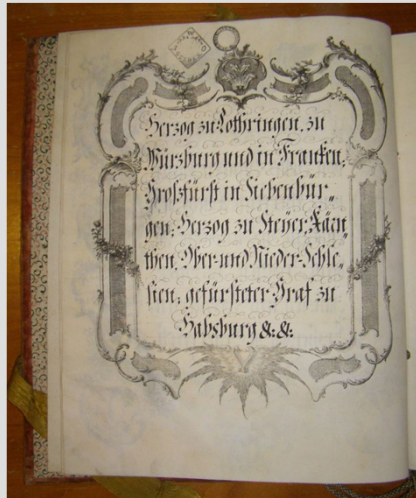 Herzog zu Lothringen, zu
Würzburg und in Franken,
Großfürst in Siebenbür„
gen, Herzog zu Steyer, Kärn
then, Ober- und Nieder-Schle„
sien; gefürsteter Graf zu
Habsburg &: &: